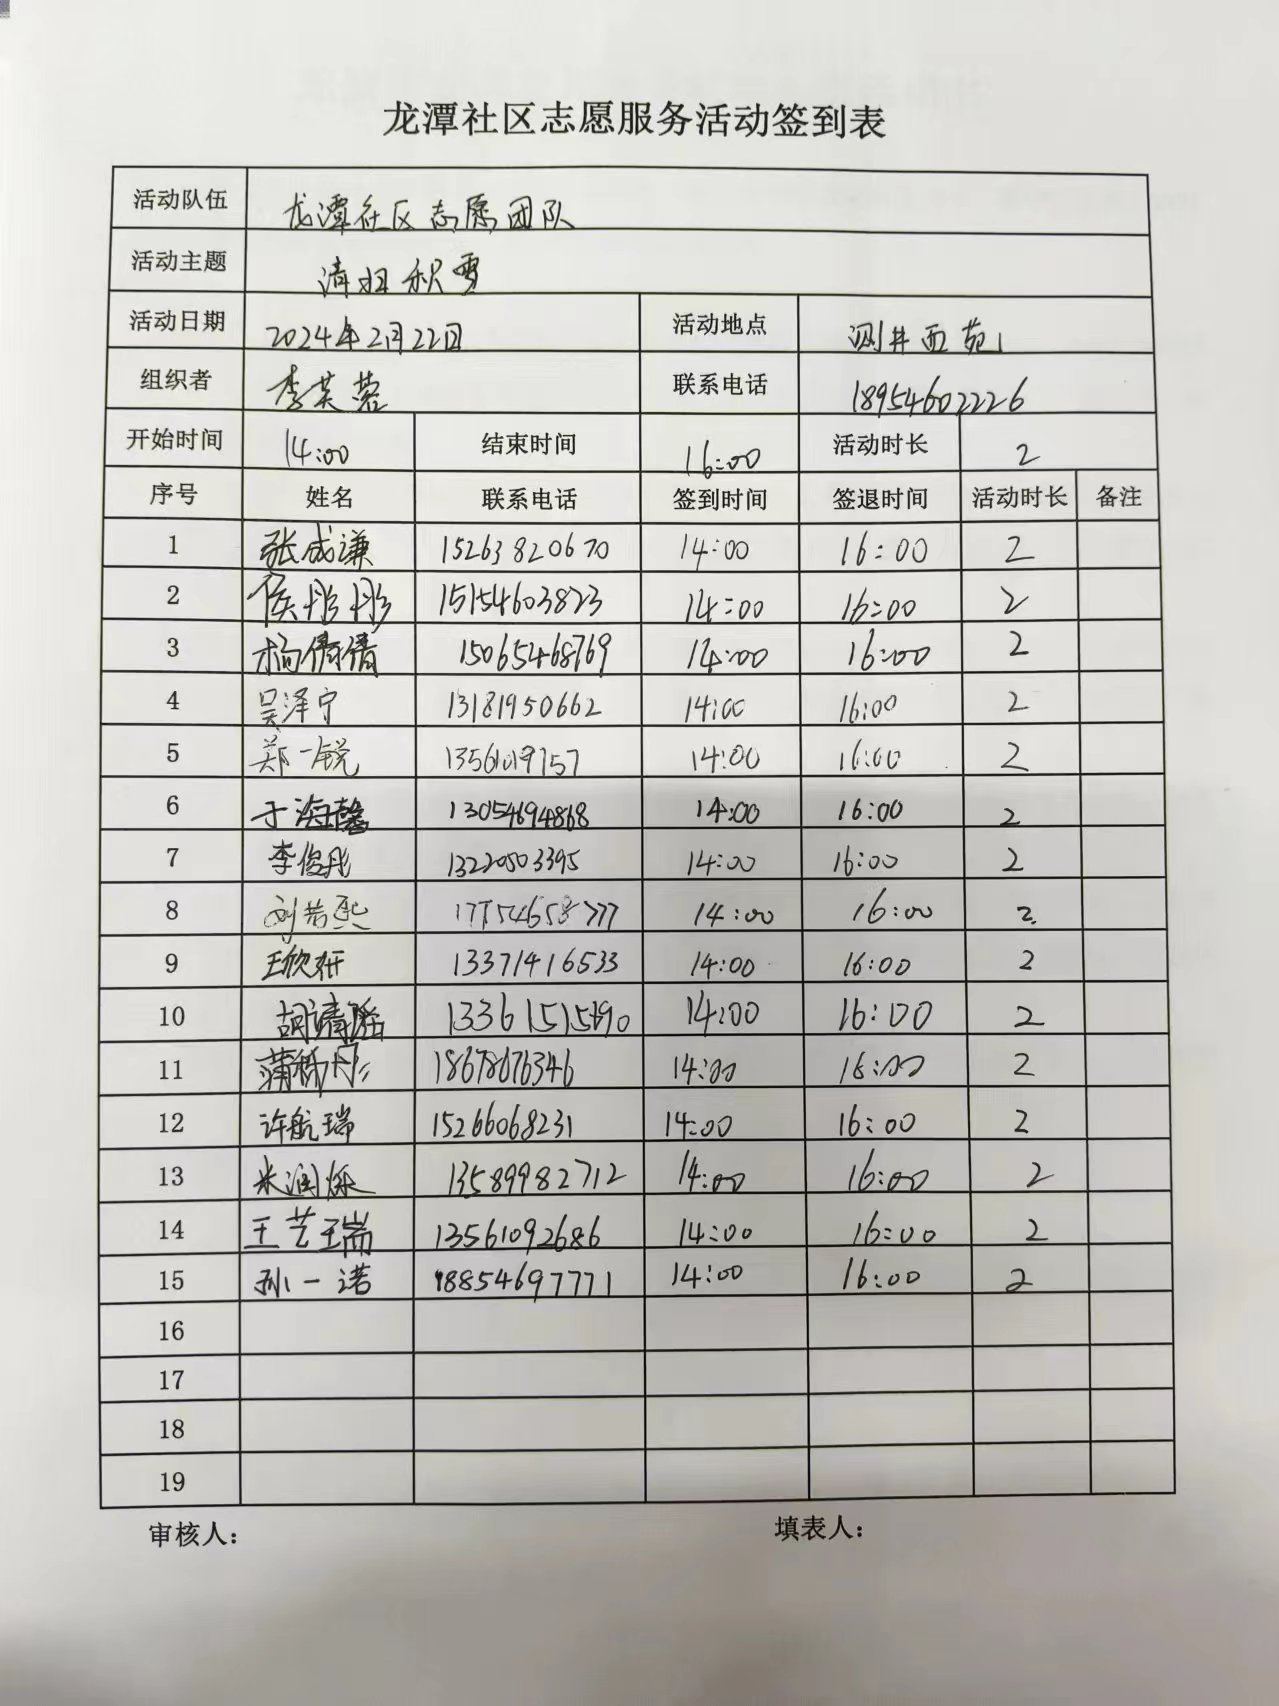 龙潭社区志愿服务活动签到表
活动队伍 龙潭社区志愿团队
活动主题 清扫积雪
活动日期 2024年2月22日 活动地点 测井西苑
组织者 李芙蓉 联系电话 18954602226
开始时间 14:00 结束时间 16:00 活动时长 2
序号 姓名 联系电话 签到时间 签退时间 活动时长 备注
1 张成谦 15263820670 14:00 16:00 2
2 侯彤彤 15154603823 14:00 16:00 2
3 杨倩倩 15065468769 14:00 16:00 2
4 吴泽宁 13181950662 14:00 16:00 2
5 郑一锐 14:00 16:00 2
6 于海馨 13054694868 14:00 16:00 2
7 李俊彤 13220503395 14:00 16:00 2
8 刘若熙 17754658777 14:00 16:00 2
9 王欣妍 13371416533 14:00 16:00 2
10 胡清 14:00 16:00 2
11 18678676346 14:00 16:00 2
12 许航瑞 15266068231 14:00 16:00 2
13 米润烁 13589982712 14:00 16:00 2
14 王艺瑞 13561092686 14:00 16:00 2
15 孙一诺 18854697771 14:00 16:00 2
16
17
18
19
审核人: 填表人: